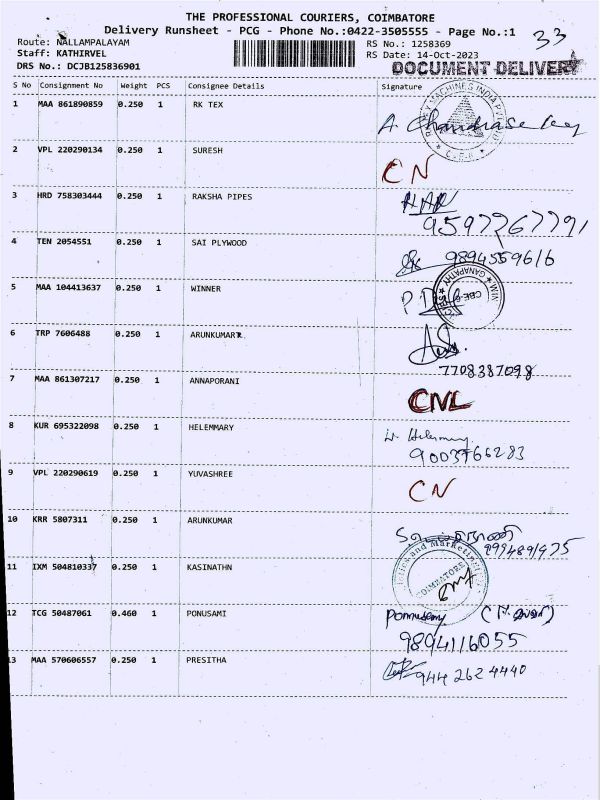 THE PROFESSIONAL COURIERS, COIMBATORE
Delivery Runsheet - PCG - Phone No.:0422-3505555 - Page No.:1
33
Route: NALLAMPALAYAM
RS No.: 1258369
Staff: KATHIRVEL
RS Date: 14-Oct-2023
DRS No.: DCJB125836901
DOCUMENT DELIVERY
S No Consignment No Weight PCS Consignee Details Signature
1 MAA 861890859 0.250 1 RK TEX
2 VPL 220290134 0.250 1 SURESH CN
3 HRD 758303444 0.250 1 RAKSHA PIPES
9597267791
4 TEN 2054551 0.250 1 SAI PLYWOOD
9894559616
5 MAA 104413637 0.250 1 WINNER
6 TRP 7606488 0.250 1 ARUNKUMAR
7708387098
7 MAA 861307217 0.250 1 ANNAPORANI CNL
8 KUR 695322098 0.250 1 HELEMMARY
9003766283
9 VPL 220290619 0.250 1 YUVASHREE CN
10 KRR 5807311 0.250 1 ARUNKUMAR
11 IXM 504810337 0.250 1 KASINATHN
COIMBATORE
12 TCG 50487061 0.460 1 PONUSAMI Ponnusamy
9894116055
13 MAA 570606557 0.250 1 PRESITHA
944 262 4440